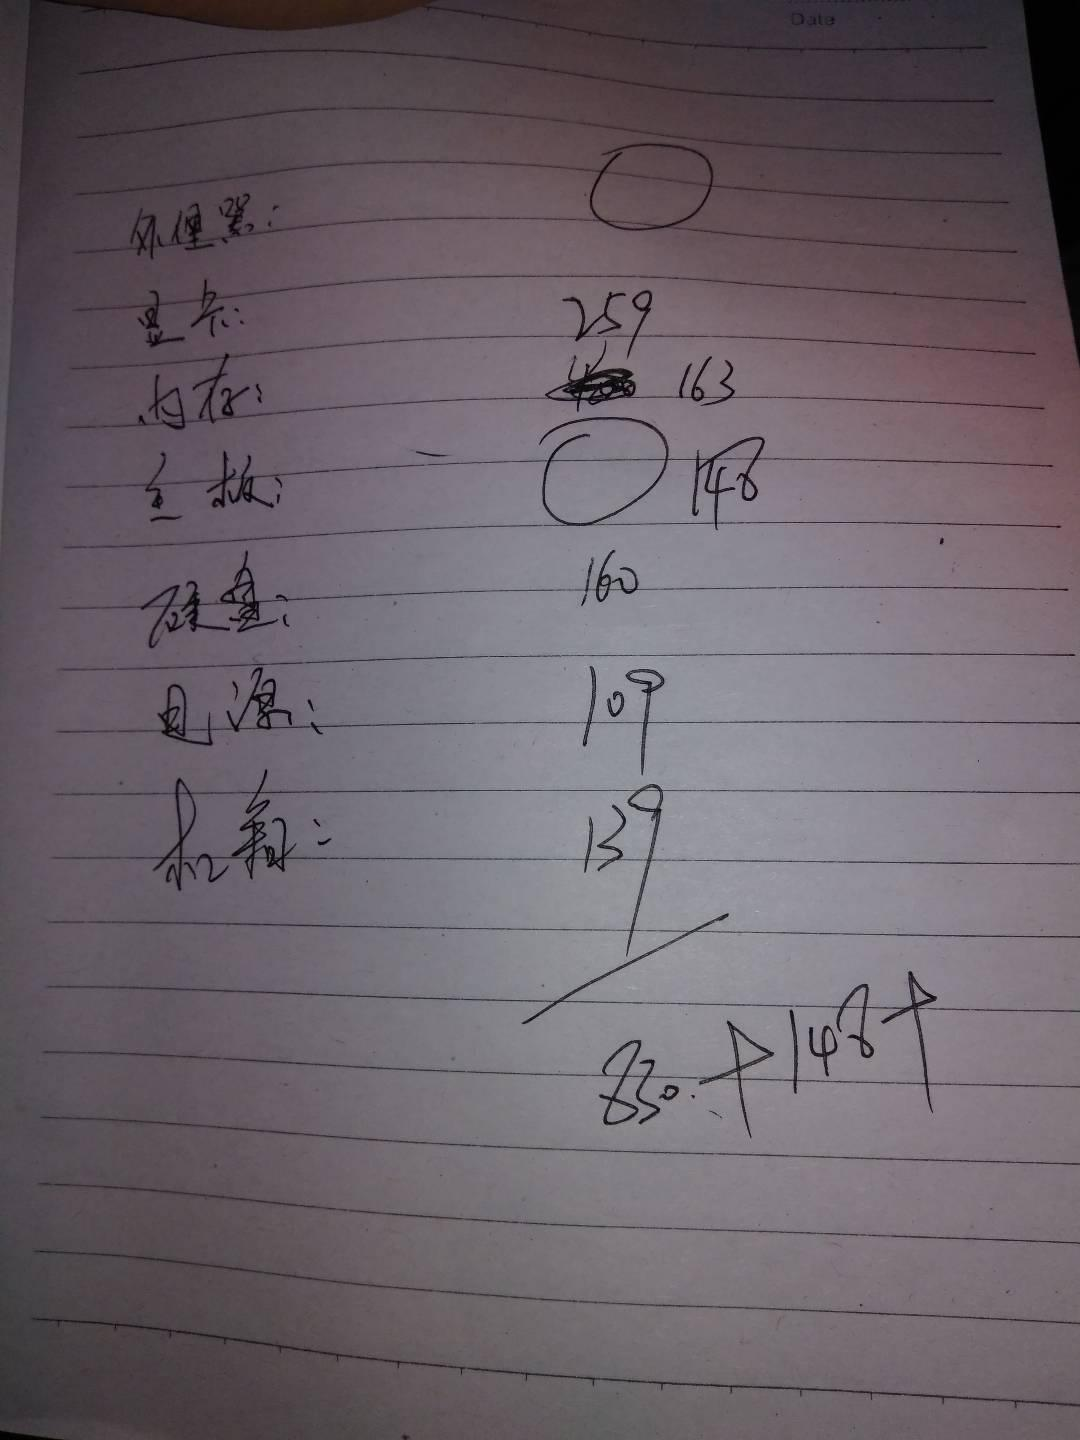 Date
处理器:
显卡: 259
内存: 163
主板: 148
硬盘: 160
电源: 109
机箱: 139
830. 148